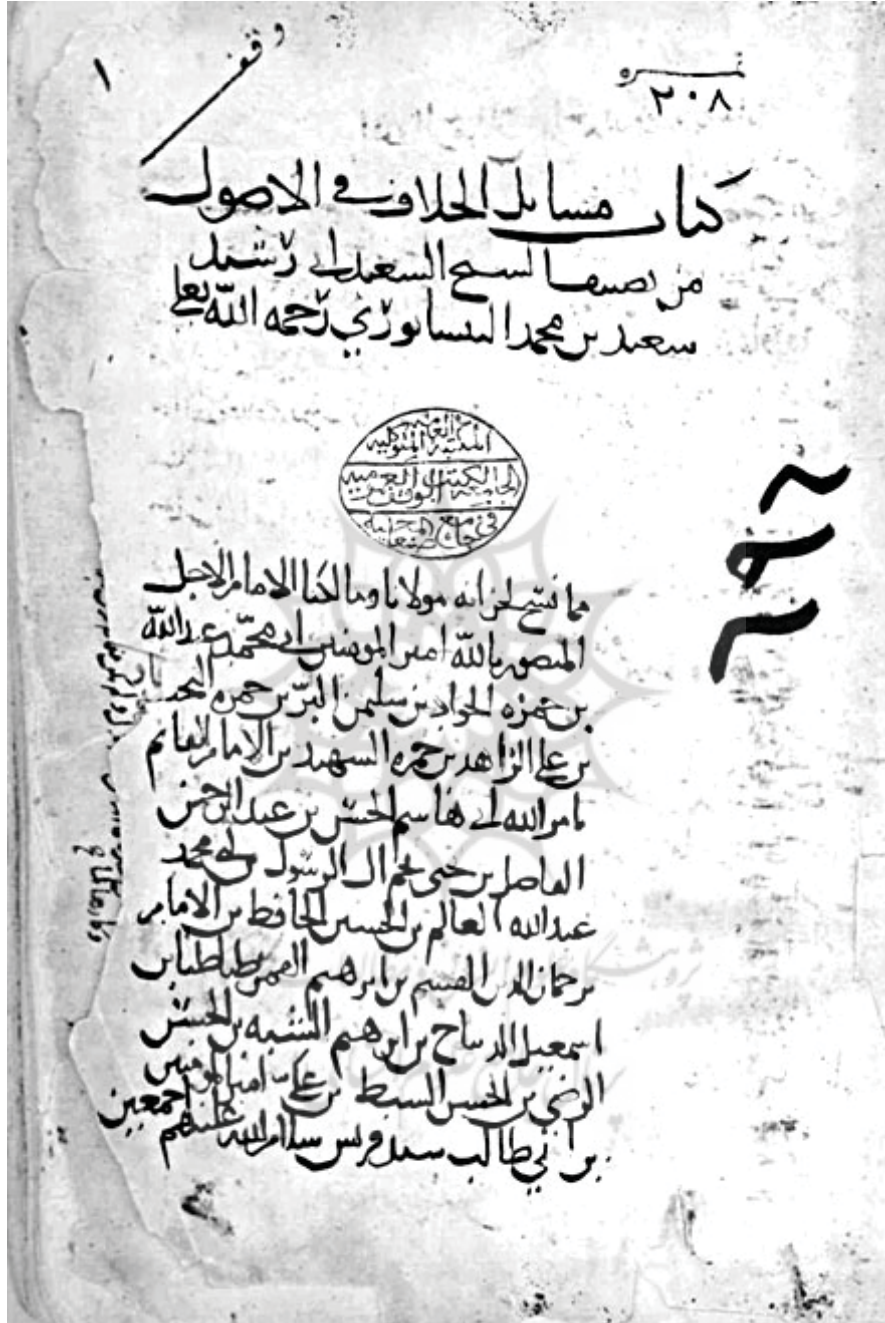 ١
وقف
نمره
٢٠٨
كتاب مسائل الخلاف في الاصول
من تصنيف الشيخ السعيد ابي رشيد
سعيد بن محمد النيسابوري رحمه الله تعلى
المكتبة العامة المتوكلية
الجامعة لكتب الوقف العمومية
في جامع صنعا المحمية
مما نسخ لخزانه مولانا ومالكنا الامام الاجل
المنصور بالله امير المومنين ابي محمد عبدالله
بن حمزه الجواد بن سليمن البر بن حمزه
بن علي الزاهد بن حمزه الشهيد بن الامام القائم
بامر الله ابي هاشم الحسن بن عبد الرحمن
الفاضل بن يحيى نجم ال الرسول بن ابي محمد
عبدالله العالم بن الحسين الحافظ بن الامام
ترجمان الدين القسم بن ابرهيم الغمر طباطبا بن
اسمعيل الديباج بن ابرهيم الشبه بن الحسن
الرضي بن الحسن السبط بن علي امير المومنين
بن ابي طالب سلام الله عليهم اجمعين